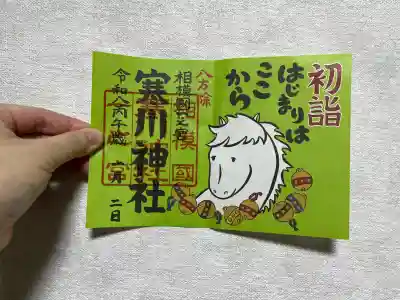 初詣
はじまりは
ここ
から
八方除
相模國一之宮
寒川神社
令和八丙午歳 一月 二日